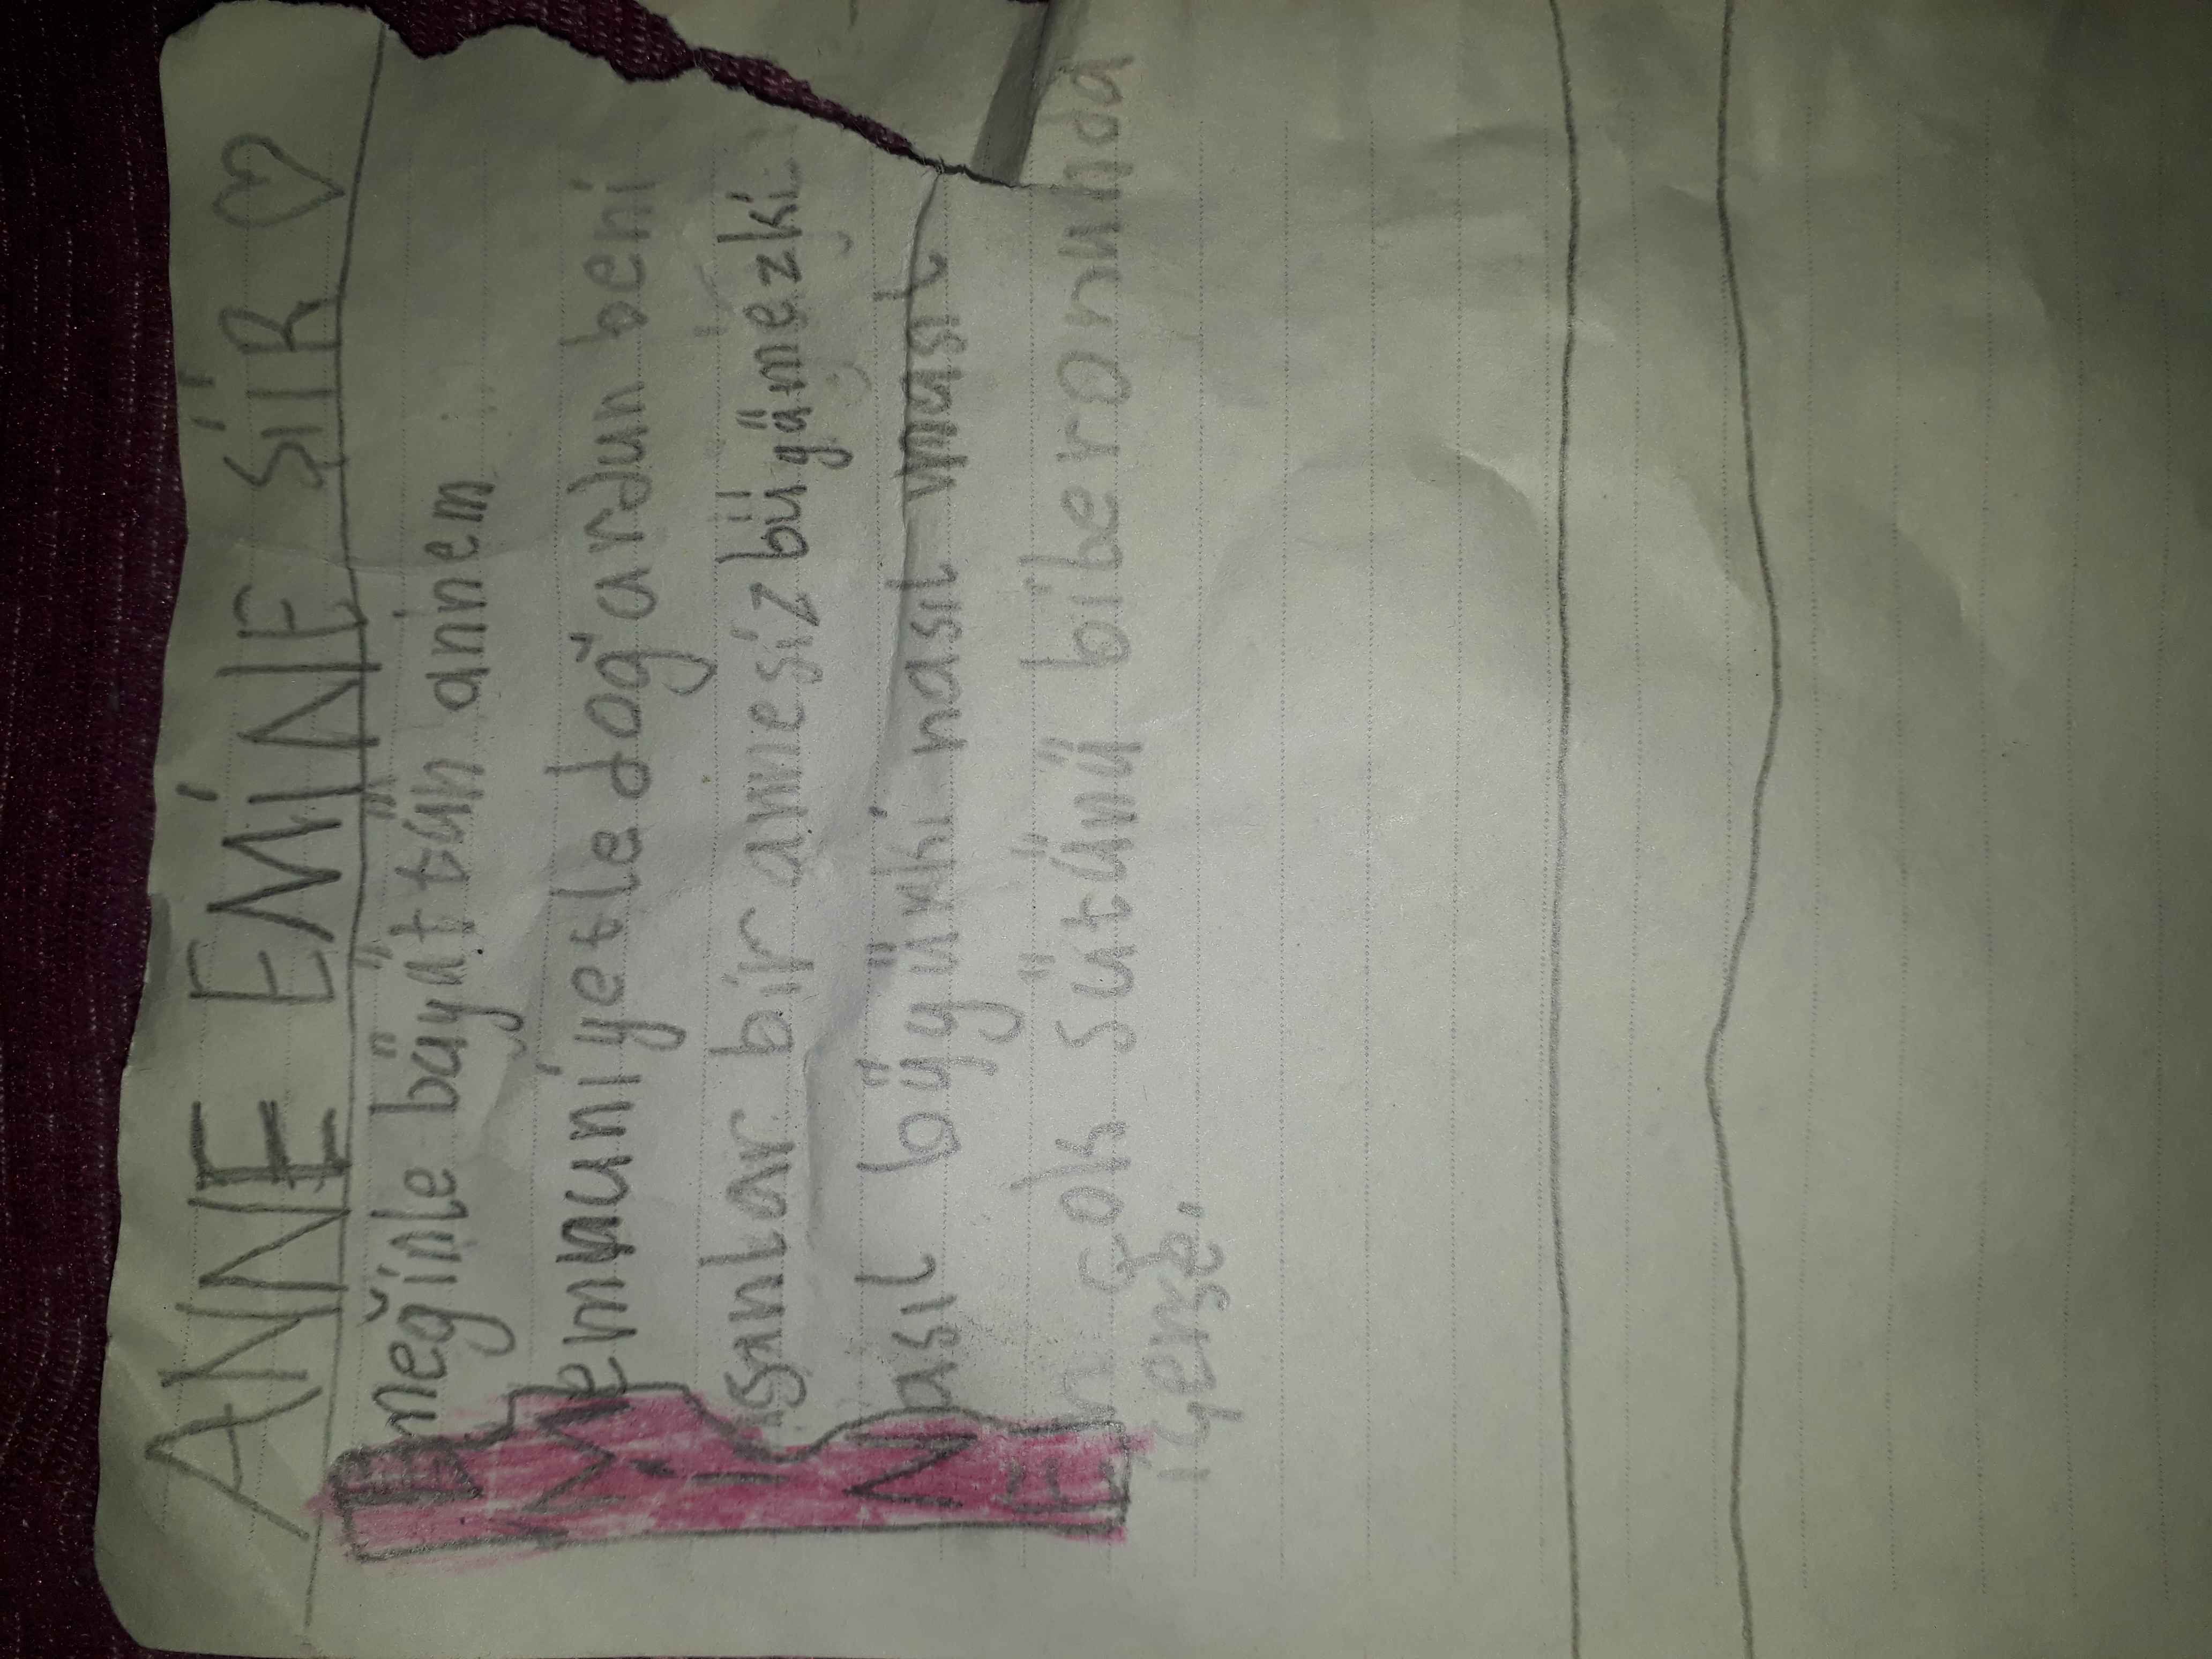 ANNE EMİNE ŞİİR ♡
Emeğinle büyüttün annem
Memnuniyetle doğurdun beni
İnsanlar bir annesiz büyümezki
Nasıl büyürki nasıl nasıl
En çok sütünü biberonunda
içerse.